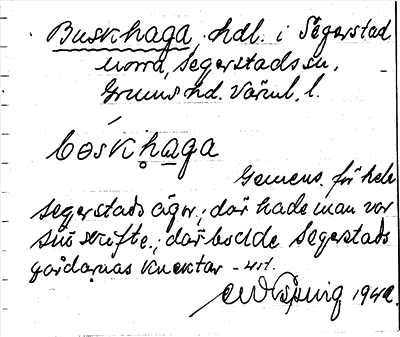 Buskhaga hdl. i Segerstad
norra, Segerstads sn.
Grums hd. Värml. l.
bøskhaga
Gemens. för hela
Segerstads ägor; där hade man var
sitt skifte; där bodde Segerstads
gårdarnas knektar -
1942.